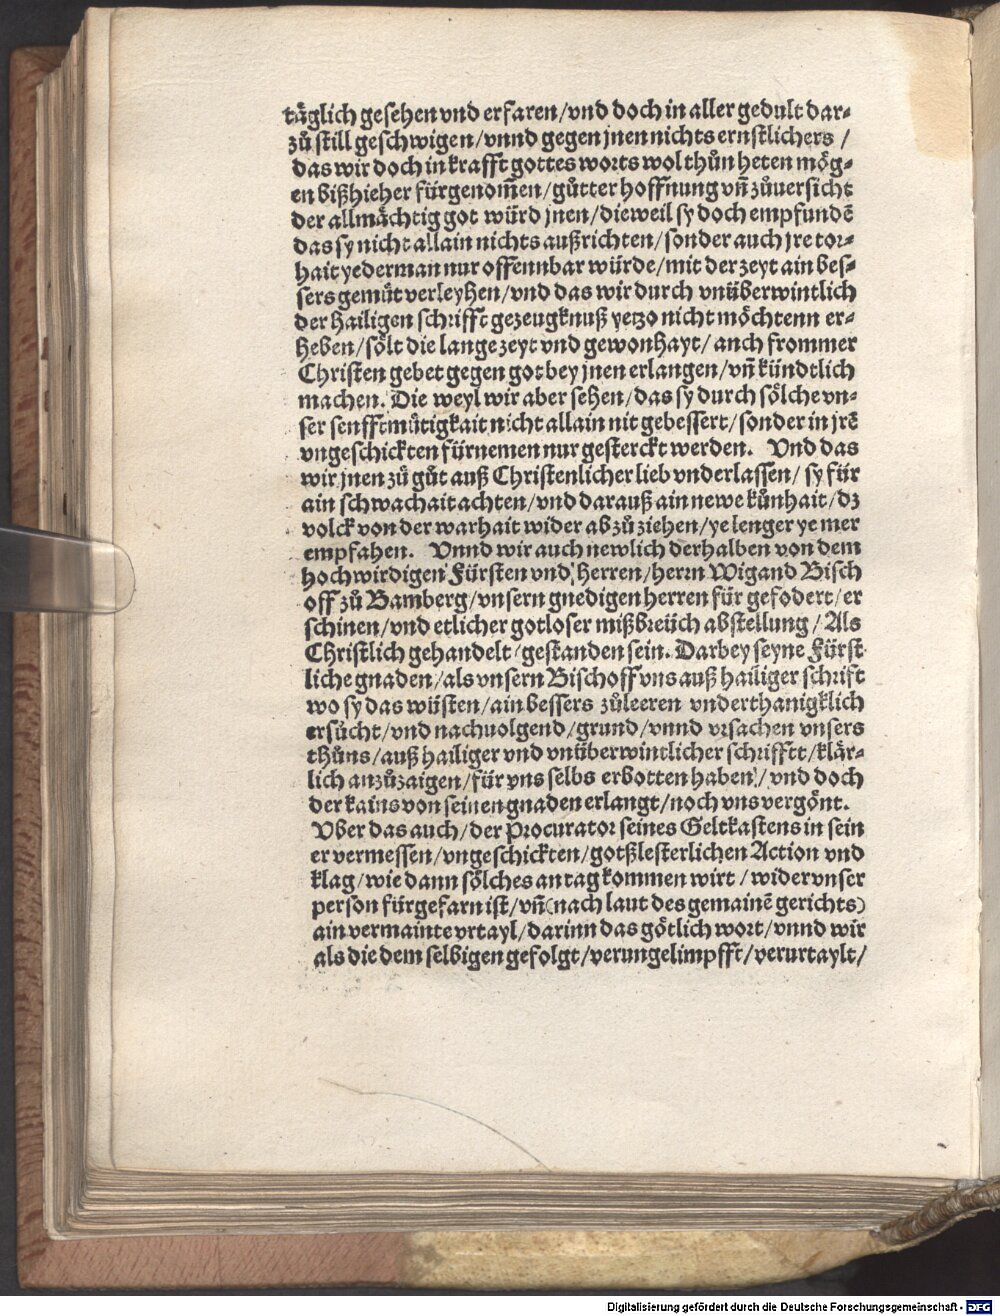 täglich gesehen vnd erfaren/vnd doch in aller gedult dar-
zů still geschwigen/vnnd gegen jnen nichts ernstlichers /
das wir doch in krafft gottes worts wol thůn heten mög-
en bißhieher fürgenom̄en/gůtter hoffnung vn̄ zůuersicht
der allmächtig got würd jnen/dieweil sy doch empfundē
das sy nicht allain nichts außrichten/sonder auch jre tor-
hait yederman nur offennbar würde/mit der zeyt ain bes-
sers gemüt verleyhen/vnd das wir durch vnüberwintlich
der hailigen schrifft gezeugknuß yetzo nicht möchtenn er-
heben/sölt die lange zeyt vnd gewonhayt/ auch frommer
Christen gebet gegen got bey jnen erlangen/vn̄ kündtlich
machen. Die weyl wir aber sehen/das sy durch sölche vn-
ser senfftmütigkait nicht allain nit gebessert/sonder in jrē
vngeschickten fürnemen nur gesterckt werden. Vnd das
wir jnen zů gůt auß Christenlicher lieb vnderlassen/ sy für
ain schwachait achten/vnd darauß ain newe kůnhait/dz
volck von der warhait wider abzůziehen/ye lenger ye mer
empfahen. Vnnd wir auch newlich derhalben von dem
hochwirdigen Fürsten vnd Herren/herrn Wigand Bisch
off zů Bamberg/vnsern gnedigen herren für gefodert/er
schinen/vnd etlicher gotloser mißbreüch abstellung/Als
Christlich gehandelt/gestanden sein. Darbey seyne Fürst
liche gnaden/als vnsern Bischoff vns auß hailiger schrift
wo sy das wüsten/ain bessers zůleeren vnderthanigklich
ersůcht/vnd nachuolgend/grund/vnnd vrsachen vnsers
thůns/auß hailiger vnd vnüberwintlicher schrifft/klär-
lich anzůzaigen/für vns selbs erbotten haben/vnd doch
der kains von seinen gnaden erlangt/noch vns vergönt.
Vber das auch/der Procurator seines Geltkastens in sein
er vermessen/vngeschickten/gotßlesterlichen Action vnd
klag/wie dann sölches an tag kommen wirt/wider vnser
person fürgefarn ist/vn̄(nach laut des gemainē gerichts)
ain vermainte vrtayl/darinn das götlich wort/vnnd wir
als die dem selbigen gefolgt/verungelimpfft/verurtaylt/
Digitalisierung gefördert durch die Deutsche Forschungsgemeinschaft - DFG